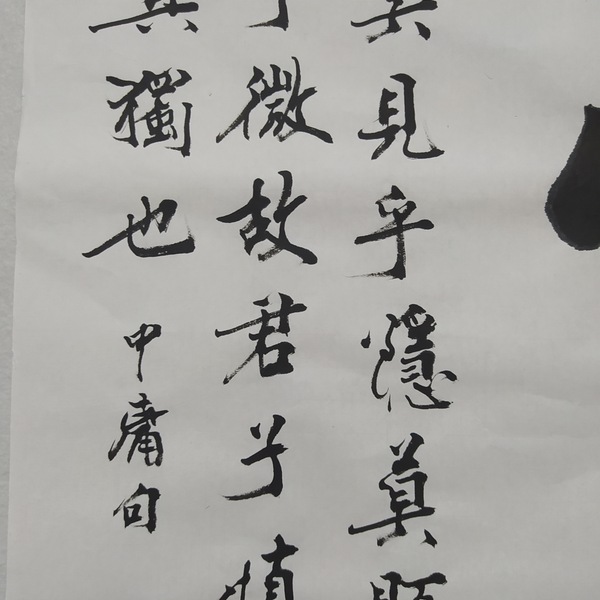 莫見乎隱莫
微故君子慎
其獨也
中庸句